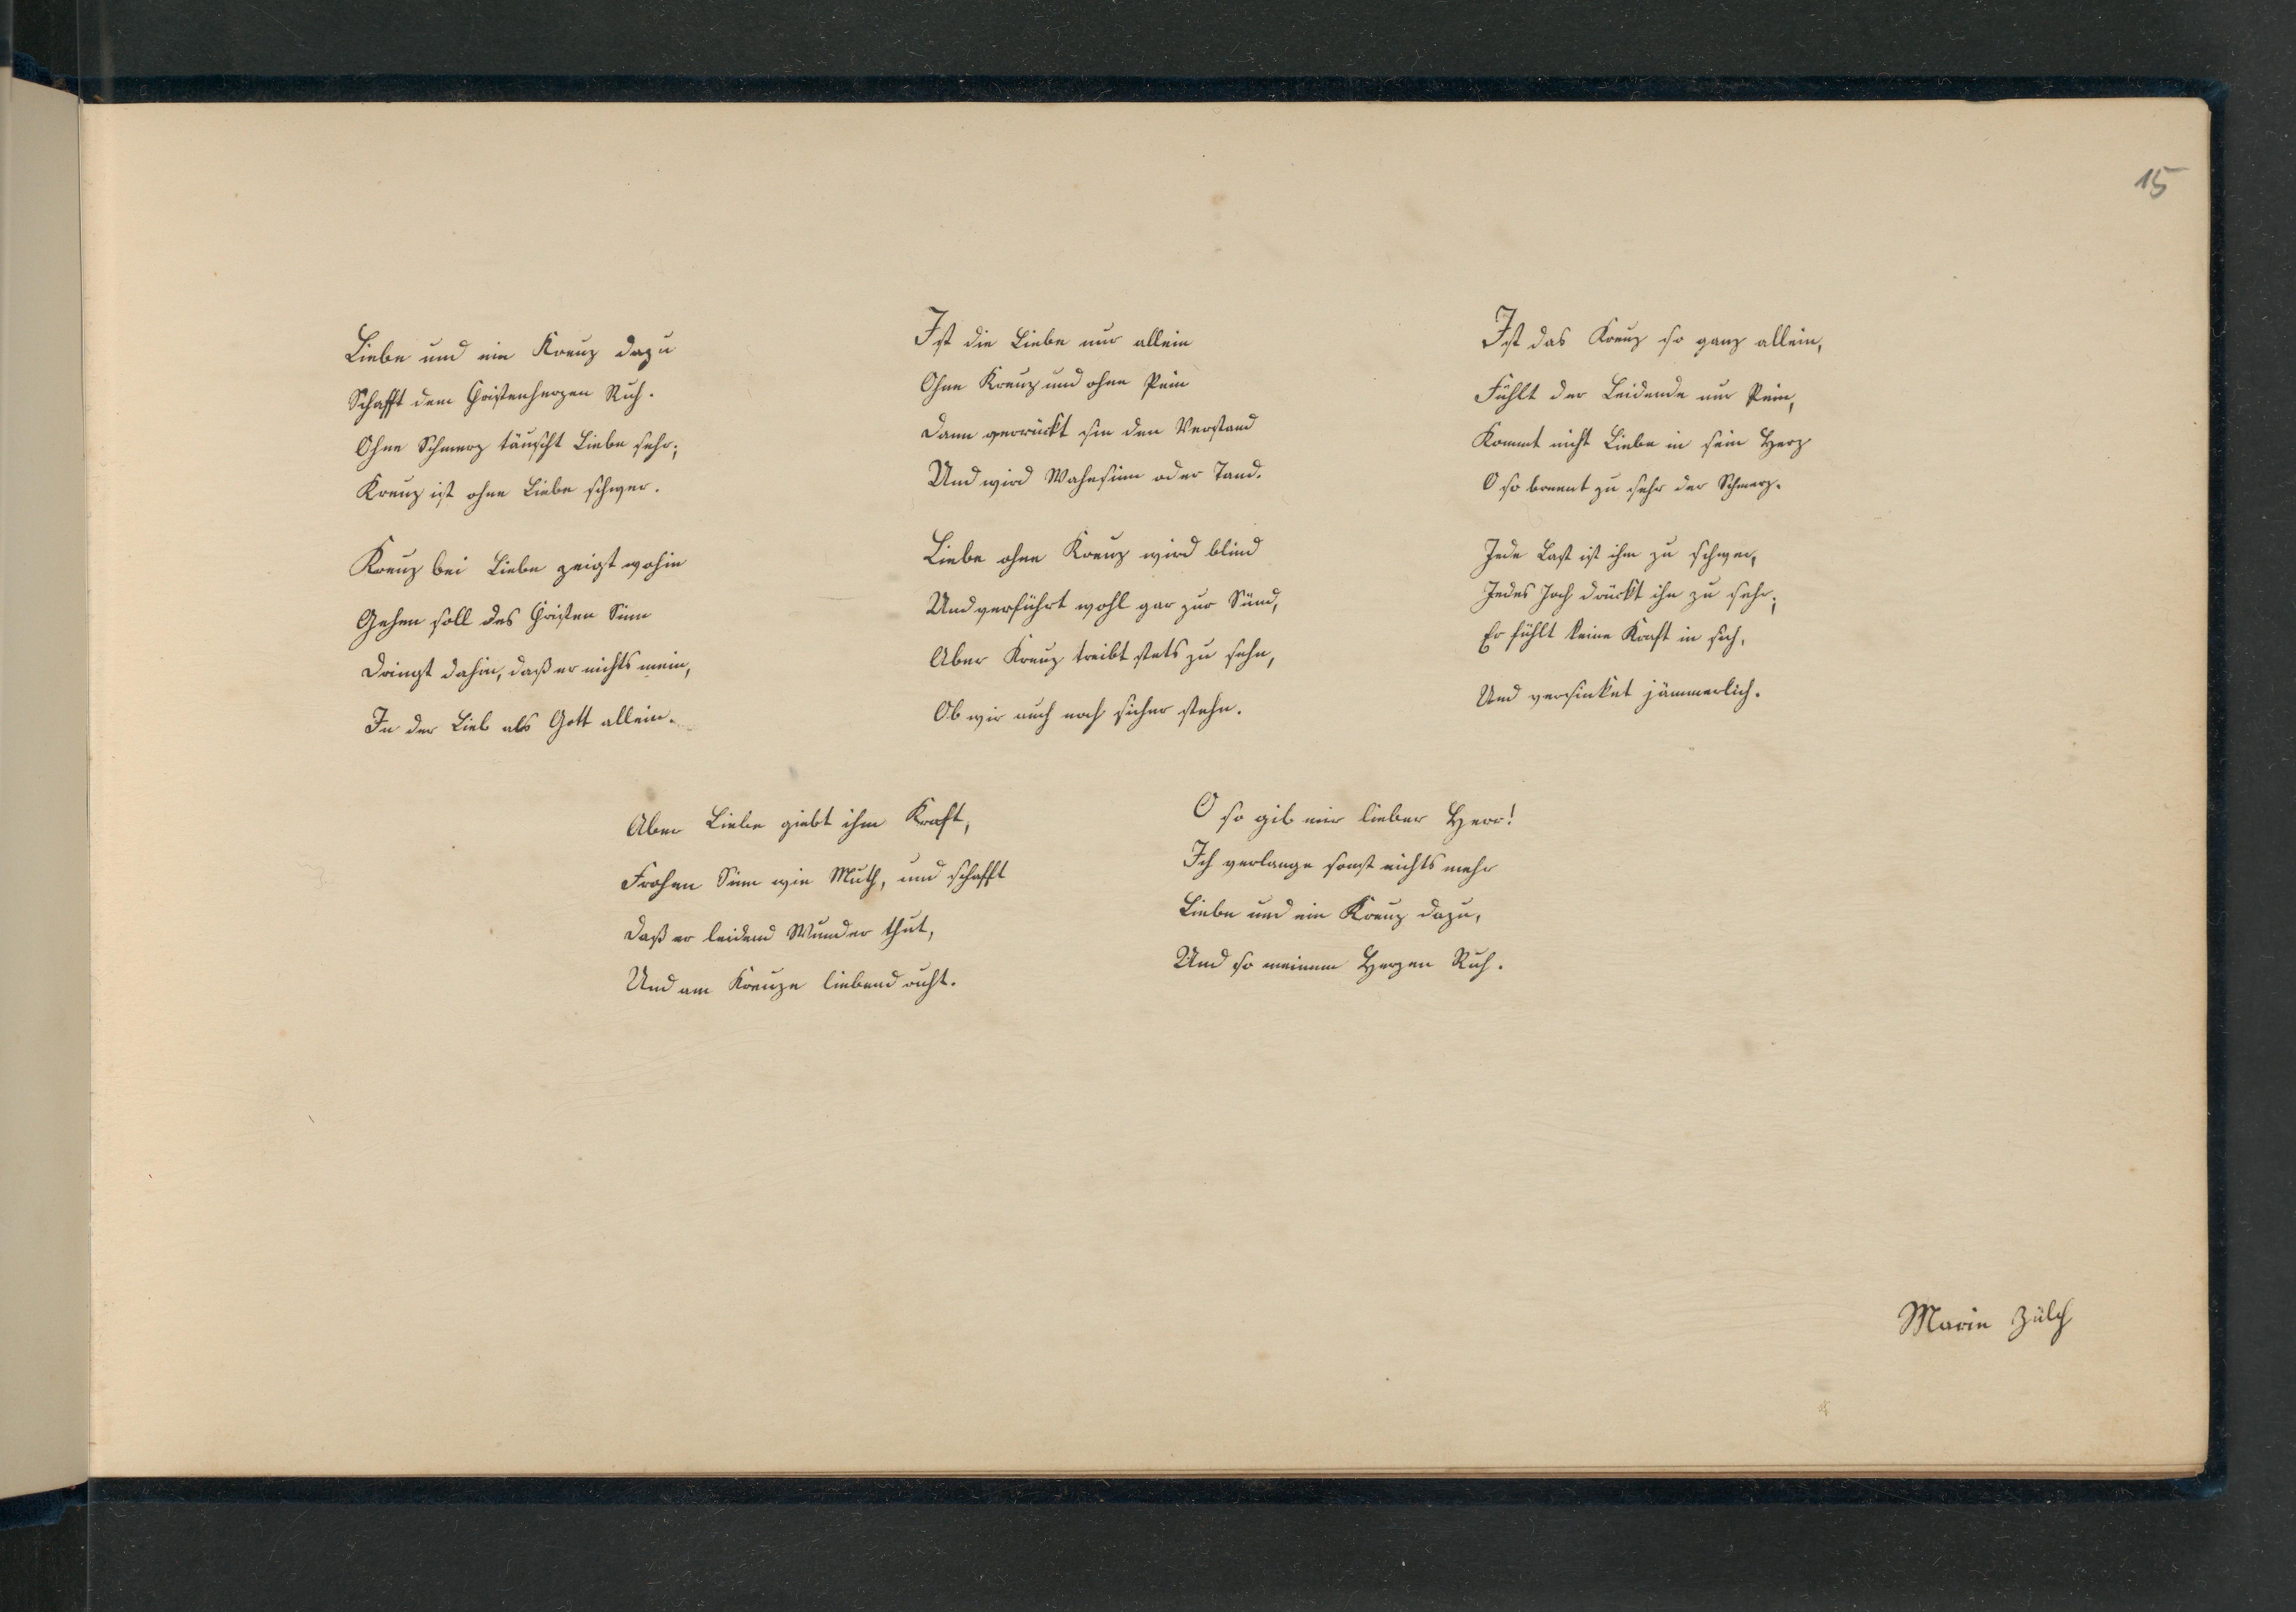 15
Liebe und ein Kreuz dazu
Schafft dem Christenherzen Ruh.
Ohne Schmerz täuscht Liebe sehr;
Kreuz ist ohne Liebe schwer.
Kreuz bei Liebe zeigt wohin
Gehen soll des Christen Sinn
Dringt dahin, daß er nichts mein,
In der Lieb als Gott allein.
Ist die Liebe nur allein
Ohne Kreuz und ohne Pein
Dann verrückt sie den Verstand
Und wird Wahnsinn oder Tand.
Liebe ohne Kreuz wird blind
Und verführt wohl gar zur Sünd,
Aber Kreuz treibt stets zu sehn,
Ob wir auch noch sicher stehn.
Ist das Kreuz so ganz allein,
Fühlt der Leidende nur Pein,
Kommt nicht Liebe in sein Herz
O so brennt zu sehr der Schmerz.
Jede Last ist ihm zu schwer,
Jedes Joch drückt ihn zu sehr;
Er fühlt keine Kraft in sich,
Und versinket jämmerlich.
Aber Liebe giebt ihm Kraft,
Frohen Sinn wie Muth, und schafft
Daß er leidend Wunder thut,
Und am Kreuze liebend ruht.
O so gib mir lieber Herr!
Ich verlange sonst nichts mehr
Liebe und ein Kreuz dazu,
Und so meinem Herzen Ruh.
Marie Zülch